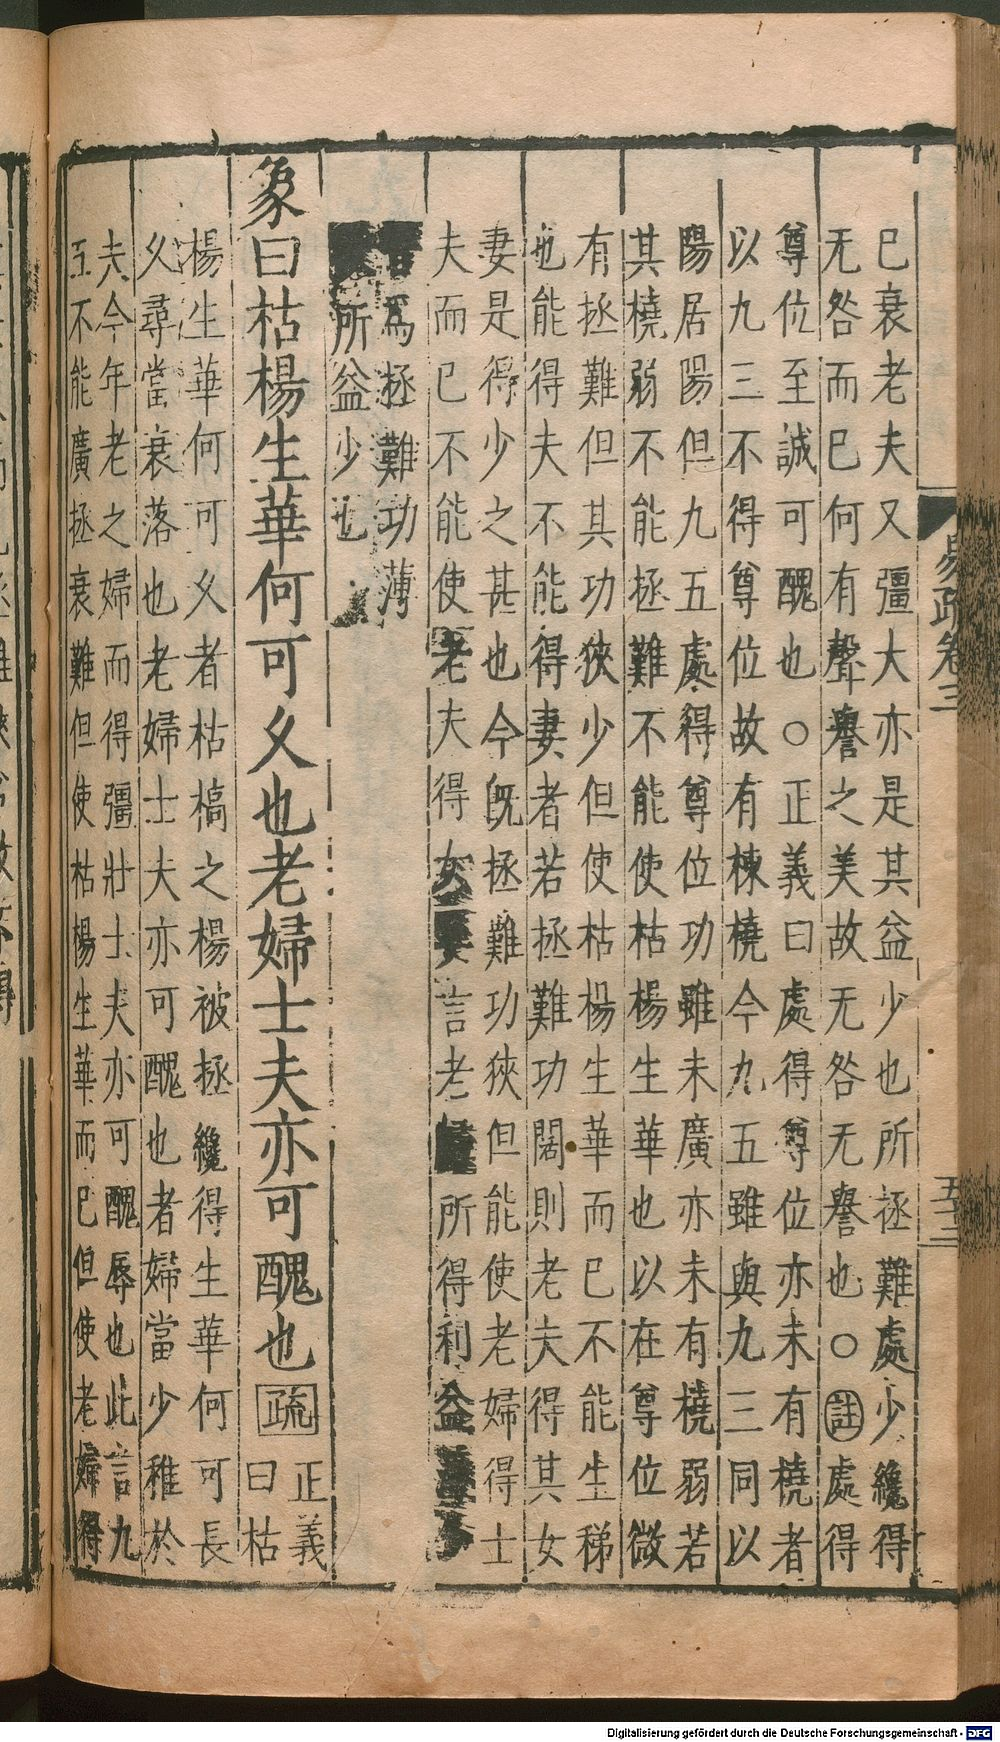 已衰老夫又彊大亦是其益少也所拯難處少纔得
无咎而已何有聲譽之美故无咎无譽也○註處得
尊位至誠可醜也○正義曰處得尊位亦未有橈者
以九三不得尊位故有棟橈今九五雖與九三同以
陽居陽但九五處得尊位功雖未廣亦未有橈弱若
其橈弱不能拯難不能使枯楊生華也以在尊位微
有拯難但其功狹少但使枯楊生華而已不能生稊
也能得夫不能得妻者若拯難功闊則老夫得其女
妻是得少之甚也今既拯難功狹但能使老婦得士
夫而已不能使老夫得女妻言老所得利益
為拯難功薄
所益少也
象曰枯楊生華何可久也老婦士夫亦可醜也疏
正義
曰枯
楊生華何可久者枯槁之楊被拯纔得生華何可長
久尋當衰落也老婦士夫亦可醜也者婦當少稚於
夫今年老之婦而得彊壯士夫亦可醜辱也此言九
五不能廣拯衰難但使枯楊生華而已但使老婦得
易疏卷三
五十二
Digitalisierung gefördert durch die Deutsche Forschungsgemeinschaft - DFG